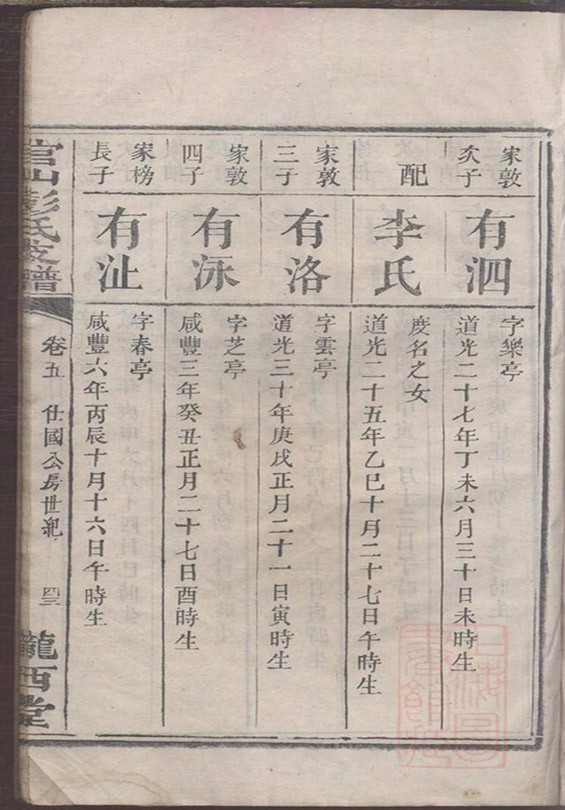 家敦
次子
有泗
字樂亭
道光二十七年丁未六月三十日未時生
配
李氏
慶名之女
道光二十五年乙巳十月二十七日午時生
家敦
三子
有洛
字雲亭
道光三十年庚戌正月二十一日寅時生
家敦
四子
有泳
字芝亭
咸豐三年癸丑正月二十七日酉時生
家榜
長子
有沚
字春亭
咸豐六年丙辰十月十六日午時生
官山彭氏支譜
卷五
仕國公房世紀
四三
隴西堂